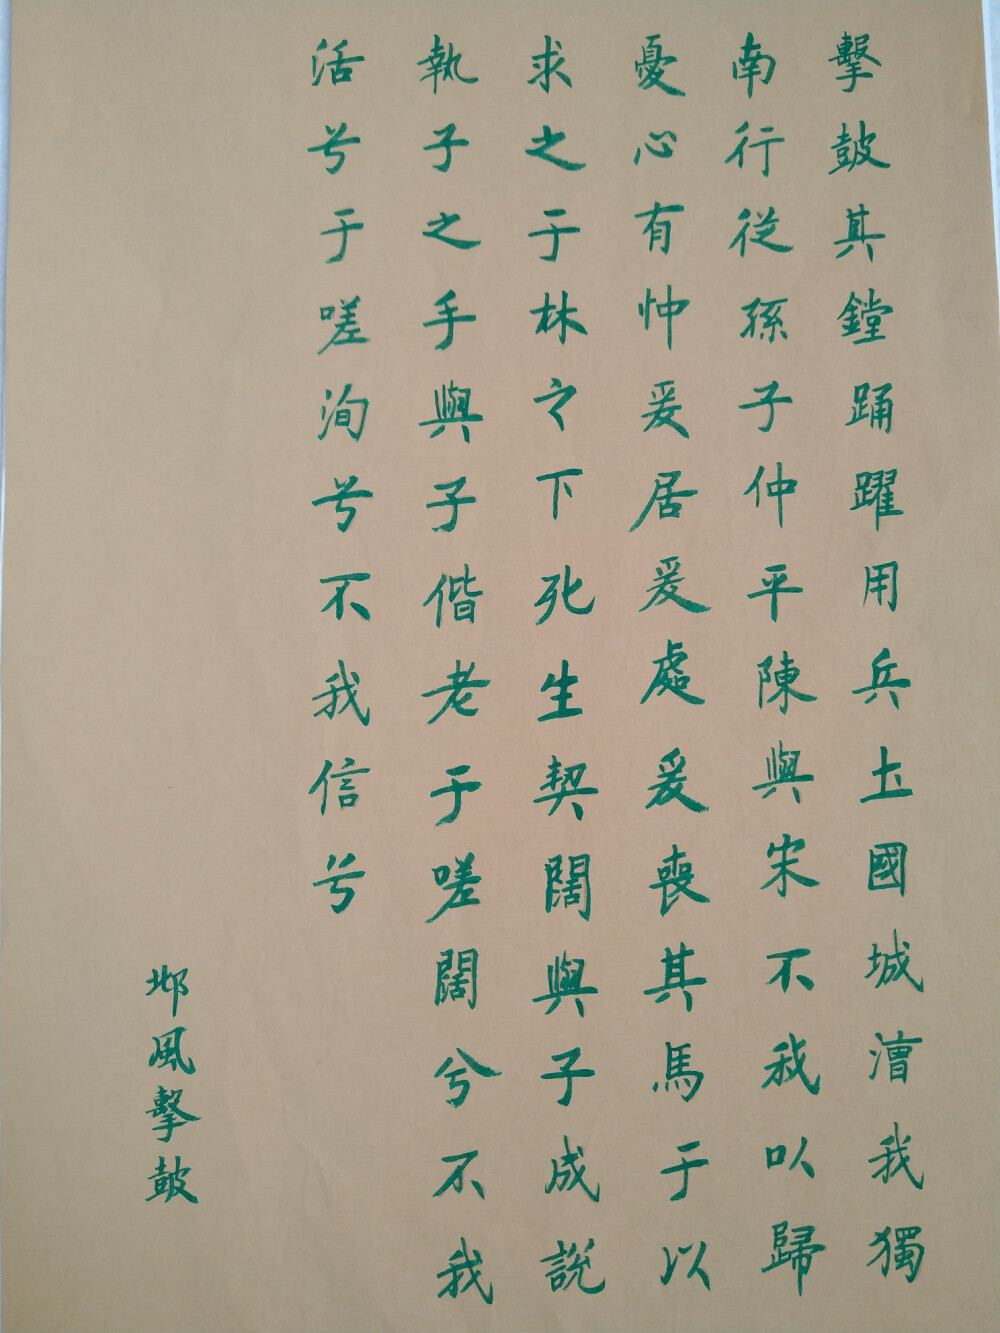 擊鼓其鏜踊躍用兵土國城漕我獨
南行從孫子仲平陳與宋不我以歸
憂心有忡爰居爰處爰喪其馬于以
求之于林之下死生契闊與子成説
執子之手與子偕老于嗟闊兮不我
活兮于嗟洵兮不我信兮
邶風擊鼓